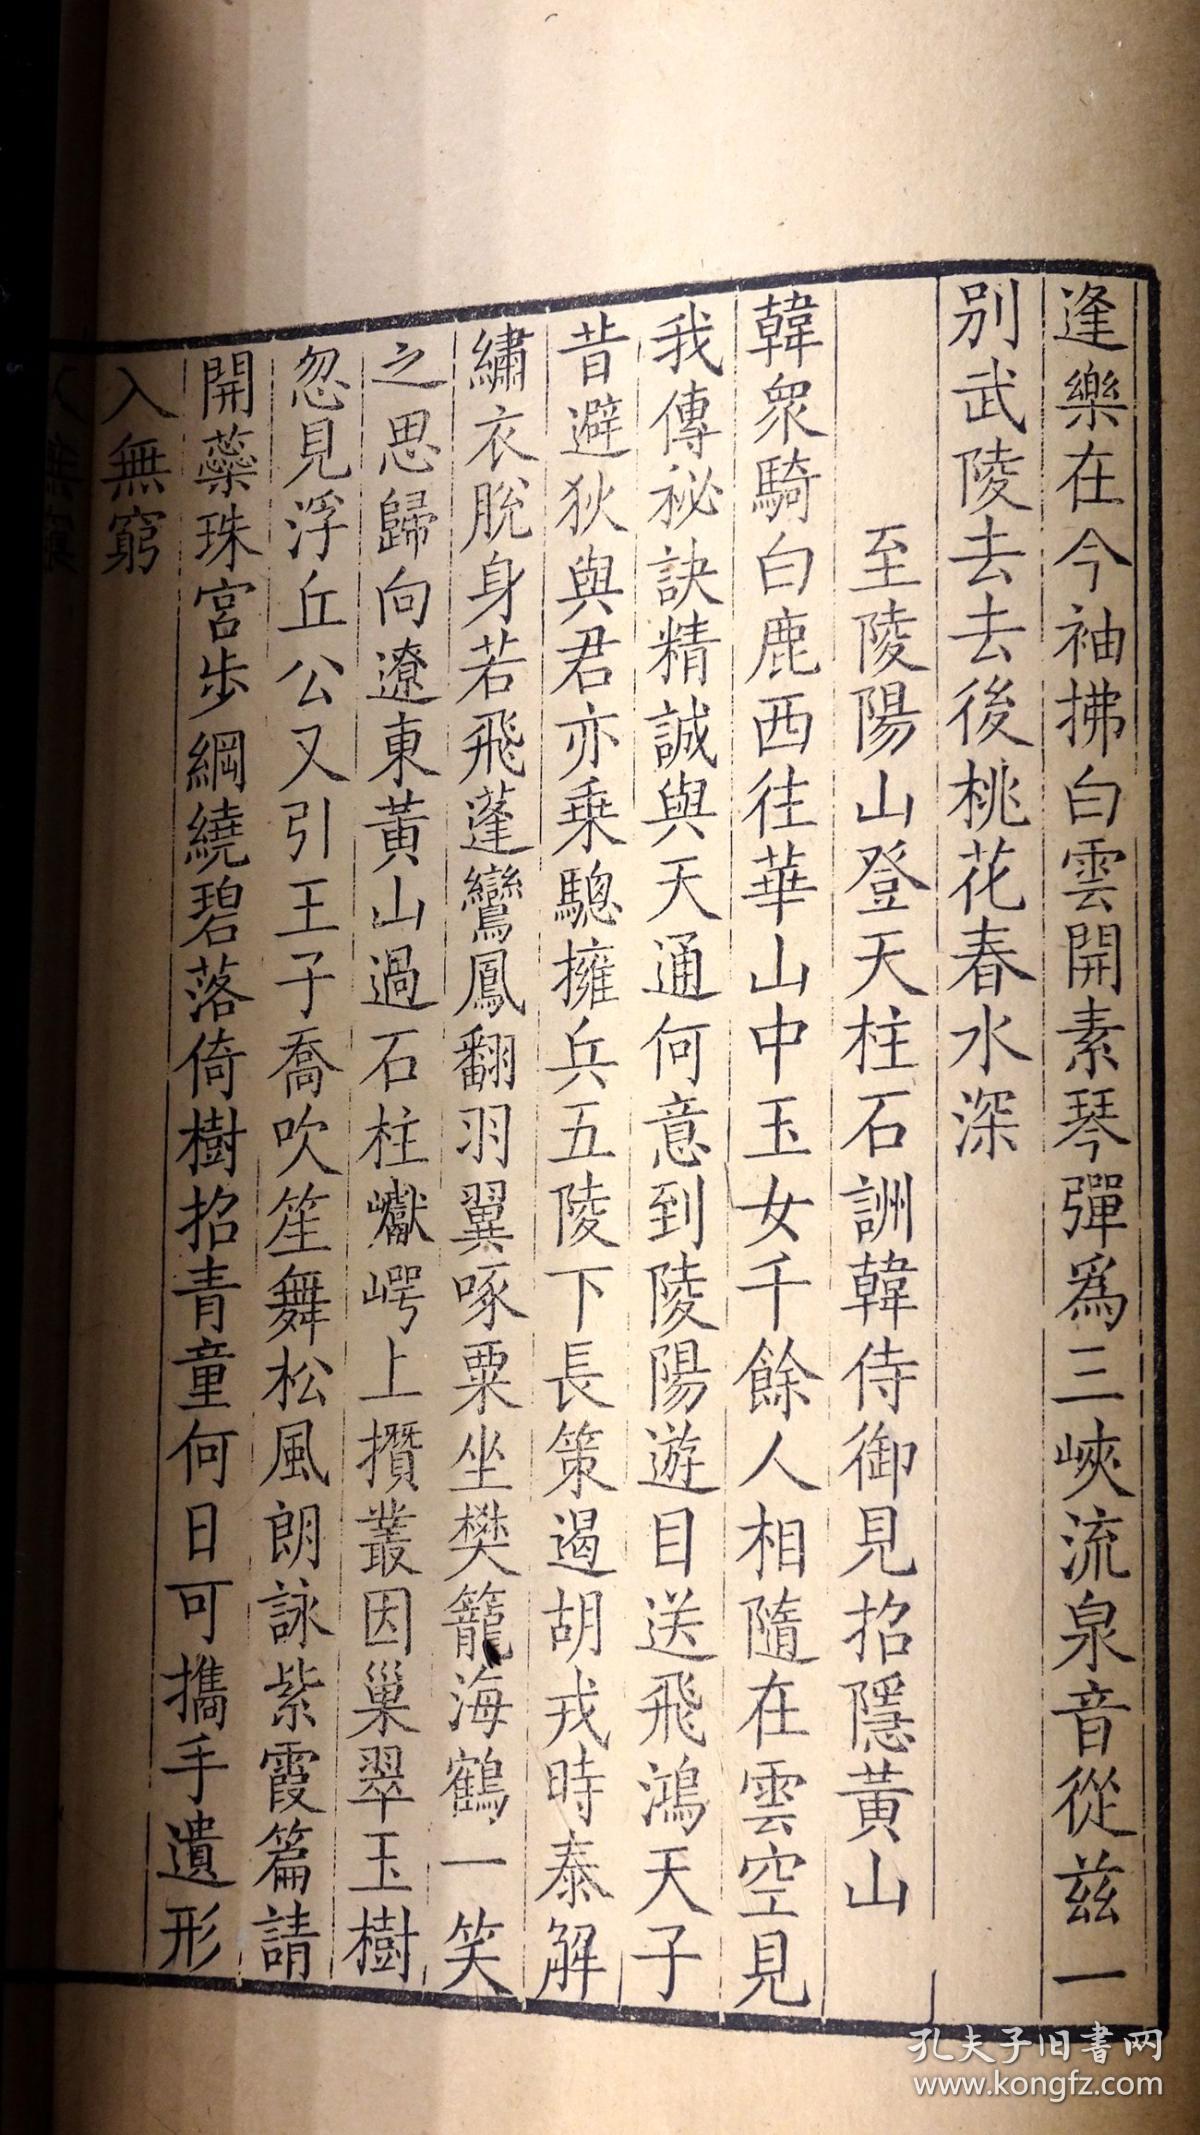 逢樂在今袖拂白雲開素琴彈爲三峽流泉音從兹一
別武陵去去後桃花春水深
至陵陽山登天柱石詶韓侍御見招隱黃山
韓衆騎白鹿西往華山中玉女千餘人相隨在雲空見
我傳祕訣精誠與天通何意到陵陽遊目送飛鴻天子
昔避狄與君亦乗驄擁兵五陵下長策遏胡戎時泰解
繡衣脫身若飛蓬鸞鳳翻羽翼啄粟坐樊籠海鶴一笑
之思歸向遼東黃山過石柱巘崿上攢叢因巢翠玉樹
忽見浮丘公又引王子喬吹笙舞松風朗詠紫霞篇請
開蘂珠宮步綱繞碧落倚樹招青童何日可攜手遺形
入無窮
孔夫子旧书网
www.kongfz.com